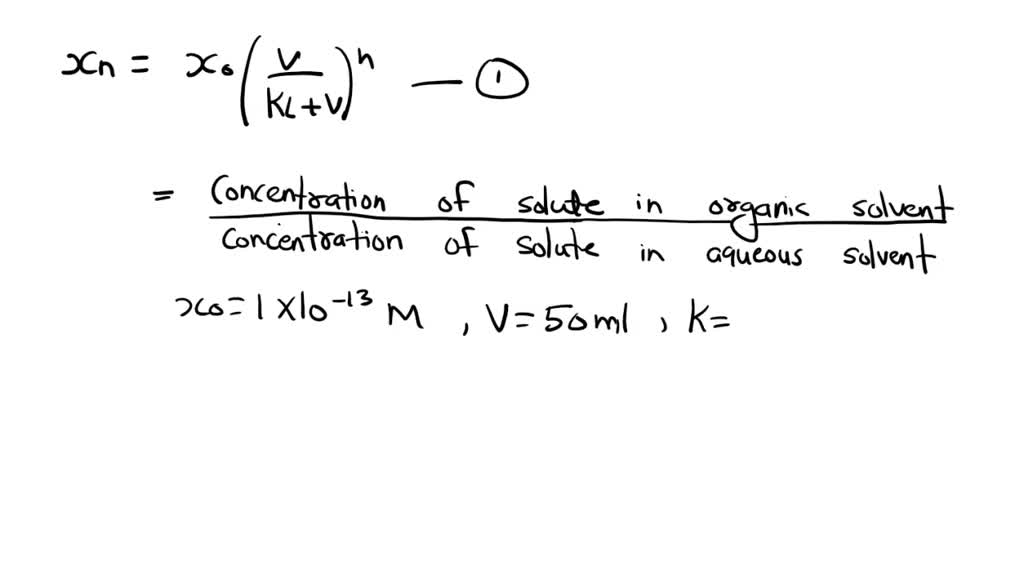 xn = x₀ (V / KL+V)ⁿ — ①
= Concentration of solute in organic solvent
Concentration of solute in aqueous solvent
x₀ = 1 X 10⁻¹³ M , V = 50 ml , K =